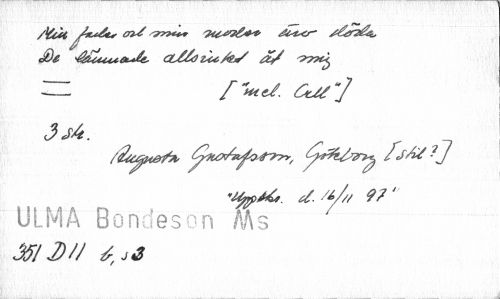 Min fader och min moder äro döda
De lämnade allsintet åt mig
["mel. Cell"]
3 str.
Augusta Gustafsson, Göteborg [stil?]
"Uppskr. d. 16/11 97"
ULMA Bondeson Ms
351 D11 b, s3